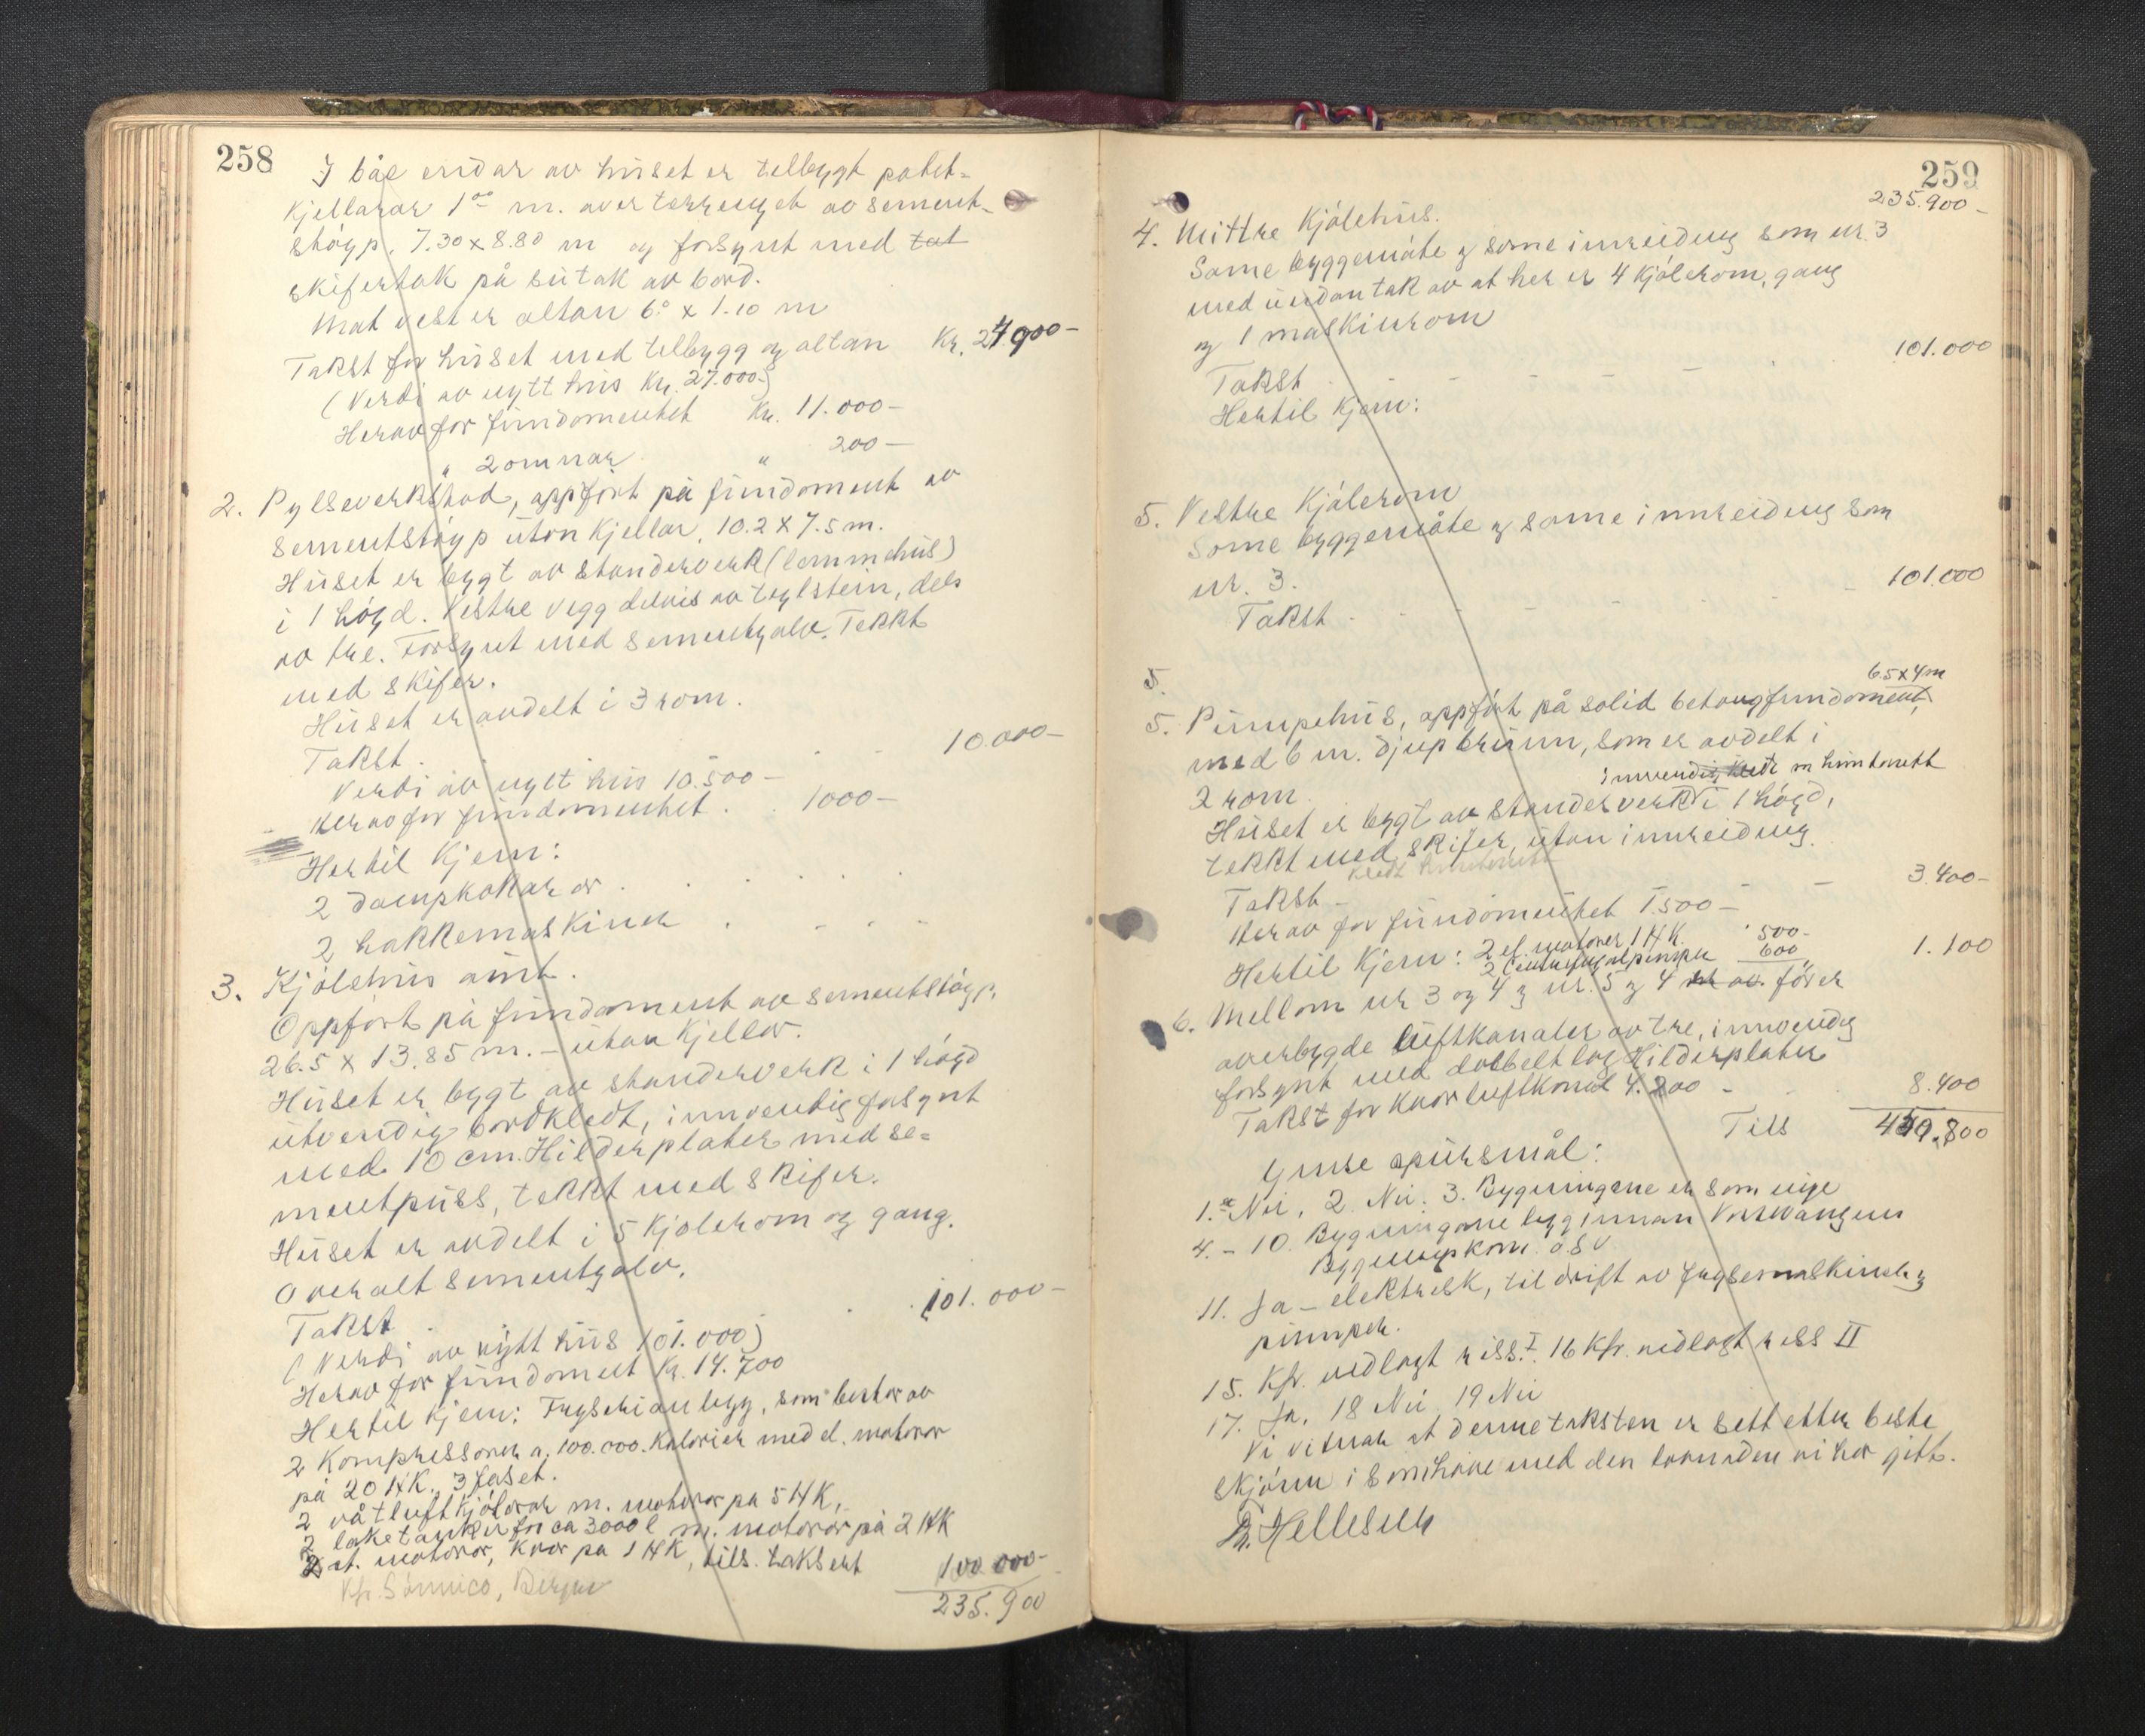 258
I båe endar av huset er tilbygt potet-
kjellarar 1 m. over terrenget av sement-
støyp, 7.30 x 8.80 m og forsynt med tat
skifertak på sutak av bord.
Mot vest er altan 6. x 1.10 m
Takst for huset med tilbygg og altan Kr. 24900-
(Verdi av nytt hus Kr. 27.000-)
Herav for fundamentet Kr. 11.000-
" 2 omnar " 200-
2. Pylseverkstad, oppført på fundament av
sementstøyp utan kjellar, 10.2 x 7.5 m.
Huset er bygt av standerverk (lemmehus)
i 1 høgd. Vestre vegg delvis av teglstein, dels
av tre. Forsynt med sementgolv. Tekkt
med skifer.
Huset er avdelt i 3 rom.
Takst . 10.000-
Verdi av nytt hus 10.500-
Herav for fundamentet . 1000-
Hertil kjem:
2 dampkokarar .
2 hakkemaskiner .
3. Kjølehus aust.
Oppført på fundament av sementstøyp,
26.5 x 13.85 m. - utan kjellar.
Huset er bygt av standerverk i 1 høgd
utvendig bordkledt, innvendig forsynt
med 10 cm. Hilderplater med se-
mentpuss, tekkt med skifer.
Huset er avdelt i 5 kjølerom og gang.
Overalt sementgolv.
Takst . 101.000-
(Verdi av nytt hus 101.000)
Herav for fundament Kr. 14.700
Hertil kjem: Fryserianlegg, som bestar av
2 Kompressorer a. 100.000. kalorier med el. motorar
på 20 HK., 3 faset.
2 våtluftkjølarar m. motorar pa 5 HK,
2 laketanker for ca 3000 l m. motorar på 2 HK
2 st. motorar, kvar pa 1 HK, tils. taksert 100 000-
Kfr. Sønnico, Bergen 235.900
259
235.900-
4. Mittre Kjølehus.
Same byggemåte og same innreiding som nr. 3
med undantak av at her er 4 kjølerom, gang
og 1 maskinrom
Takst . 101.000
Hertil kjem:
5. Vestre Kjølerom
Same byggemåte og same innreiding som
nr. 3.
Takst . 101.000
5.
6.5 x 4 m
5. Pumpehus, oppført på solid betongfundament,
med 6 m. djup brunn, som er avdelt i
2 rom. innvendig kledt m huntonitt
Huset er bygt av standerverk i 1 høgd,
tekkt med skifer, utan innreiding.
kledt huntonitt
Takst - 3.400-
Herav for fundamentet 1.500-
Hertil kjem: 2 el. motorer 1 HK. 500-
2 Centrifugalpumper 600 1.100
6. Mellom nr 3 og 4 og nr. 5 og 4 nr av. fører
overbygde luftkanaler av tre, innvendig
forsynt med dobbelt lag Hilderplater
Takst for kvar luftkanal 4.200 - 8.400
Tils 450.800
Ymse spursmål:
1. Nei, 2. Nei. 3. Bygningane er som nye
4. - 10. Bygningane ligg innan Vossevangen
Bygningskom. o.s.v
11. Ja - elektrisk, til drift av frysemaskiner og
pumper.
15. Kfr. vedlagt riss. I. 16 Kfr. vedlagt riss II
17. Ja, 18 Nei 19 Nei
Vi vitnar at denne taksten er sett etter beste
skjønn i samhøve med den lovnaden vi har gitt.